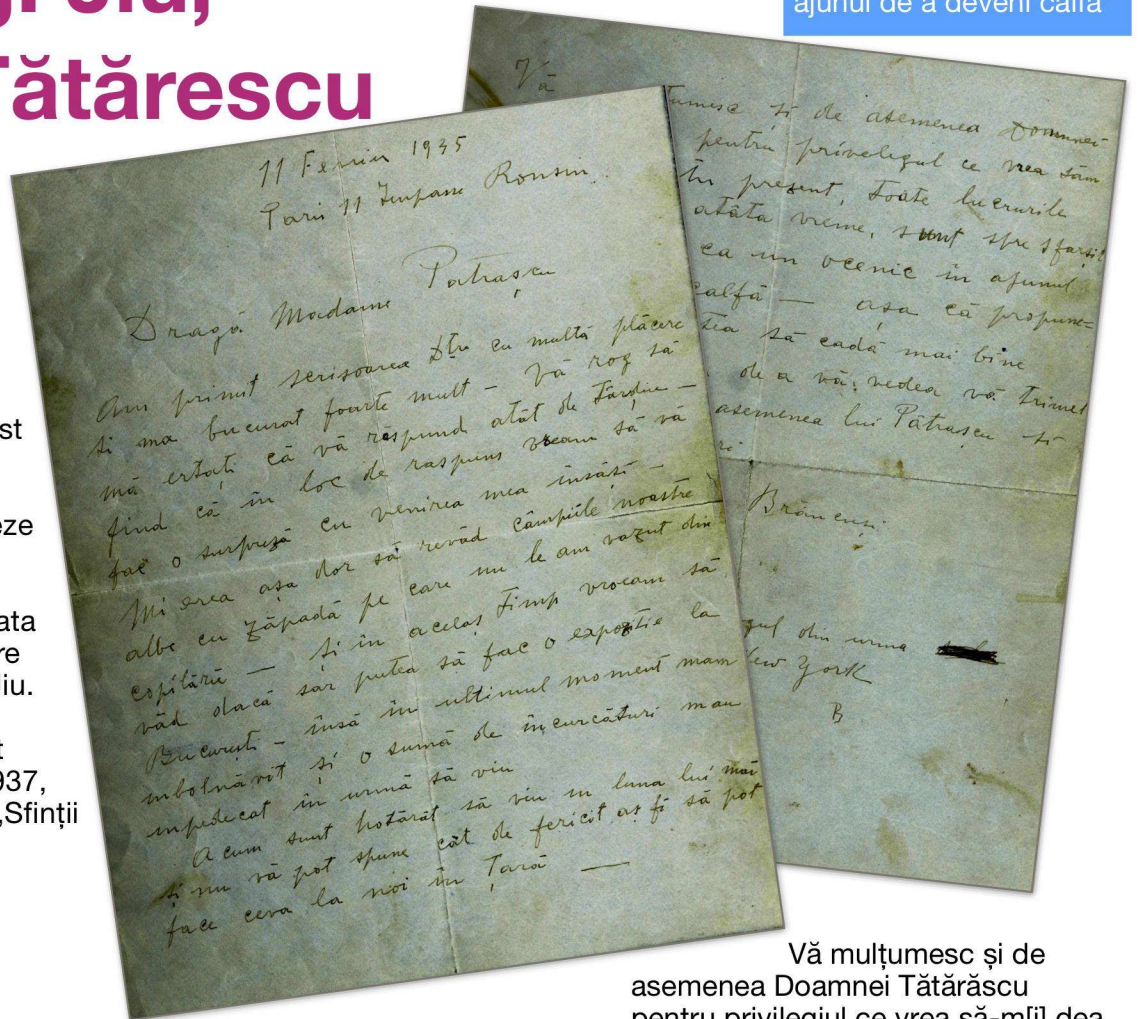 Tătărescu
ajunul de a deveni calfă
st
eze
ata
re
liu.
t
937,
„Sfinții
11 Fevrier 1935
Paris 11 Impasse Ronsin
Dragă Madame Patrașcu
Am primit scrisoarea Dtre cu multă plăcere
si ma bucurat foarte mult – Vă rog să
mă ertați că vă răspund atât de târdiu –
find că în loc de raspuns vream să vă
fac o surpriză cu venirea mea însăsi –
Mi erea așa dor să revăd câmpiile noastre
albe cu zăpadă pe care nu le am vazut din
copilărie – și în acelaș timp vroeam să
văd dacă sar putea să fac o expoziție la
București – însă in ultimul moment mam
imbolnăvit și o sumă de încurcături mau
impedecat în urmă să viu
Acum sunt hotărât să viu in luna lui mai
și nu vă pot spune cât de fericit aș fi să pot
face ceva la noi în Țară —
Vă
tumesc si de asemenea Doamnei
pentru privelegul ce vrea săm
în prezent, toate lucrurile
atâta vreme, sunt spre sfarsit
ca un ocenic in ajunul
calfă — așa că propune=
tea să cadă mai bine
de a vă vedea vă trimet
asemenea lui Pătrașcu și
ri
Brâncuși
gul din urma
New York
B
Vă mulțumesc și de
asemenea Doamnei Tătărăscu
pentru privilegiul ce vrea să-m[i] dea